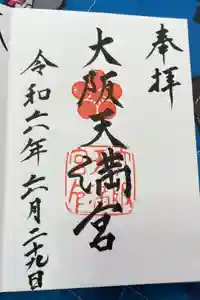 奉拝
大阪天満宮
令和六年六月二十九日